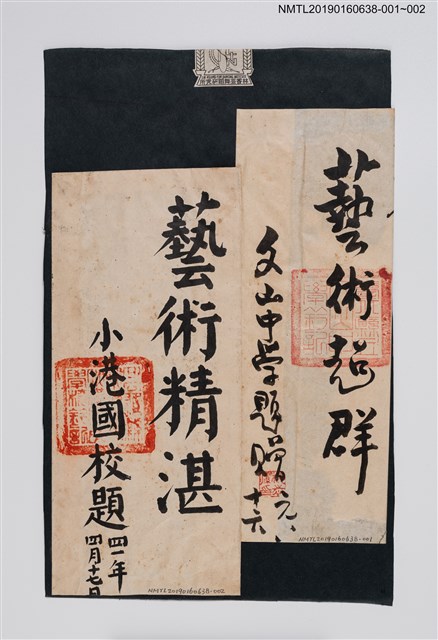 NMTL20190160638-001~002
藝術超群
文山中学題贈
元、十六、
NMTL20190160638-001
藝術精湛
小港國校題
四一年四月十七日
NMTL20190160638-002